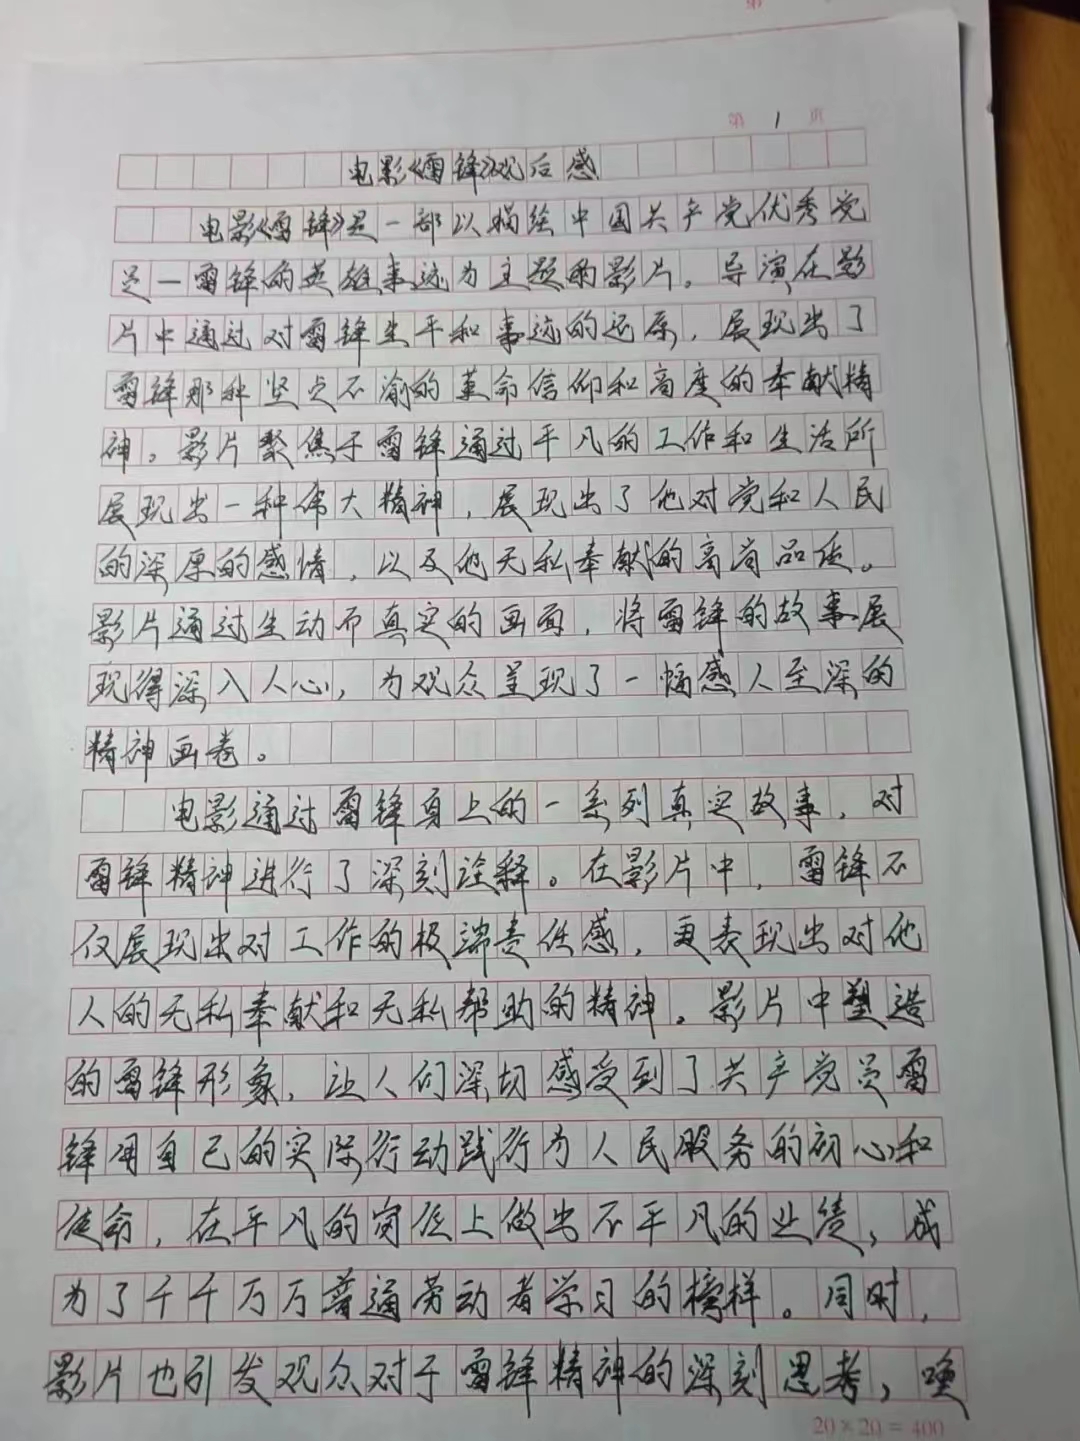 第 1 页
电影《雷锋》观后感
电影《雷锋》是一部以描绘中国共产党优秀党
员一雷锋的英雄事迹为主题的影片。导演在影
片中通过对雷锋生平和事迹的还原，展现出了
雷锋那种坚贞不渝的革命信仰和高度的奉献精
神。影片聚焦于雷锋通过平凡的工作和生活所
展现出一种伟大精神，展现出了他对党和人民
的深厚的感情，以及他无私奉献的高尚品质。
影片通过生动而真实的画面，将雷锋的故事展
现得深入人心，为观众呈现了一幅感人至深的
精神画卷。
电影通过雷锋身上的一系列真实故事，对
雷锋精神进行了深刻诠释。在影片中，雷锋不
仅展现出对工作的极端责任感，更表现出对他
人的无私奉献和无私帮助的精神。影片中塑造
的雷锋形象，让人们深切感受到了共产党员雷
锋用自己的实际行动践行为人民服务的初心和
使命，在平凡的岗位上做出不平凡的业绩，成
为了千千万万普通劳动者学习的榜样。同时，
影片也引发观众对于雷锋精神的深刻思考，唤
20×20=400